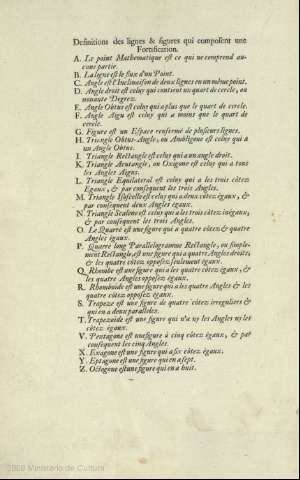 Definitions des lignes & figures qui composent une
Fortification.
A. Le point Mathematique est ce qui ne comprend au-
cune partie.
B. La ligne est le flux d'un Point.
C. Angle est l'Inclinaison de deux lignes en un même point.
D. Angle droit est celuy qui contient un quart de cercle, ou
nonante Degrez.
E. Angle Obtus est celuy qui a plus que le quart de cercle.
F. Angle Aigu est celuy qui a moins que le quart de
cercle.
G. Figure est un Espace renfermé de plusieurs lignes.
H. Triangle Obtus-Angle, ou Ambligone est celuy qui a
un Angle Obtus.
I. Triangle Rectangle est celuy qui a un angle droit.
K. Triangle Acutangle, ou Oxigone est celuy qui a tous
les Angles Aigus.
L. Triangle Equilateral est celuy qui a les trois côtez
Egaux, & par consequent les trois Angles.
M. Triangle Isoscelle est celuy qui a deux côtez égaux, &
par consequent deux Angles égaux.
N. Triangle Scalene est celuy qui a les trois côtez inégaux,
& par consequent les trois Angles.
O. Le Quarré est une figure qui a quatre côtez & quatre
Angles égaux.
P. Quarré long Parallelogramme Rectangle, ou simple-
ment Rectangle, est une figure qui a quatre Angles droits,
& les quatre côtez opposez seulement égaux.
Q. Rhombe est une figure qui a les quatre côtez égaux, &
les quatre Angles opposez égaux.
R. Rhomboide est une figure qui a les quatre Angles & les
quatre côtez opposez égaux.
S. Trapeze est une figure de quatre côtez irreguliers &
qui en a deux paralleles.
T. Trapezoide est une figure qui n'a ny les Angles ny les
côtez égaux.
V. Pentagone est une figure à cinq côtez égaux, & par
consequent les cinq Angles.
X. Exagone est une figure qui a six côtez égaux.
Y. Eptagone est une figure qui en a sept.
Z. Octogone est une figure qui en a huit.
2008 Ministerio de Cultura